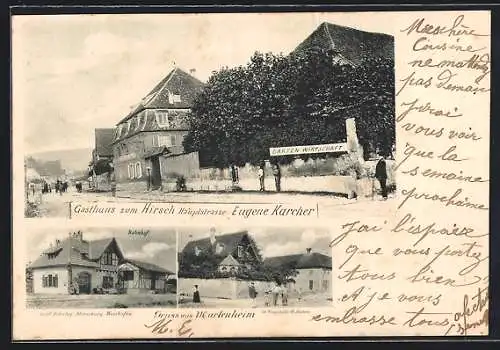 Ma chère
Cousine
ne m'attendez
pas demain
j'irai
vous voir
que la
semaine
prochaine
J'ai l'espoire
que vous portez
tous bien
et je vous
embrasse tous
GARTEN WIRTSCHAFT
Gasthaus zum Hirsch Hauptstrasse Eugene Karcher
Bahnhof
Gruss aus Marlenheim
M. E.